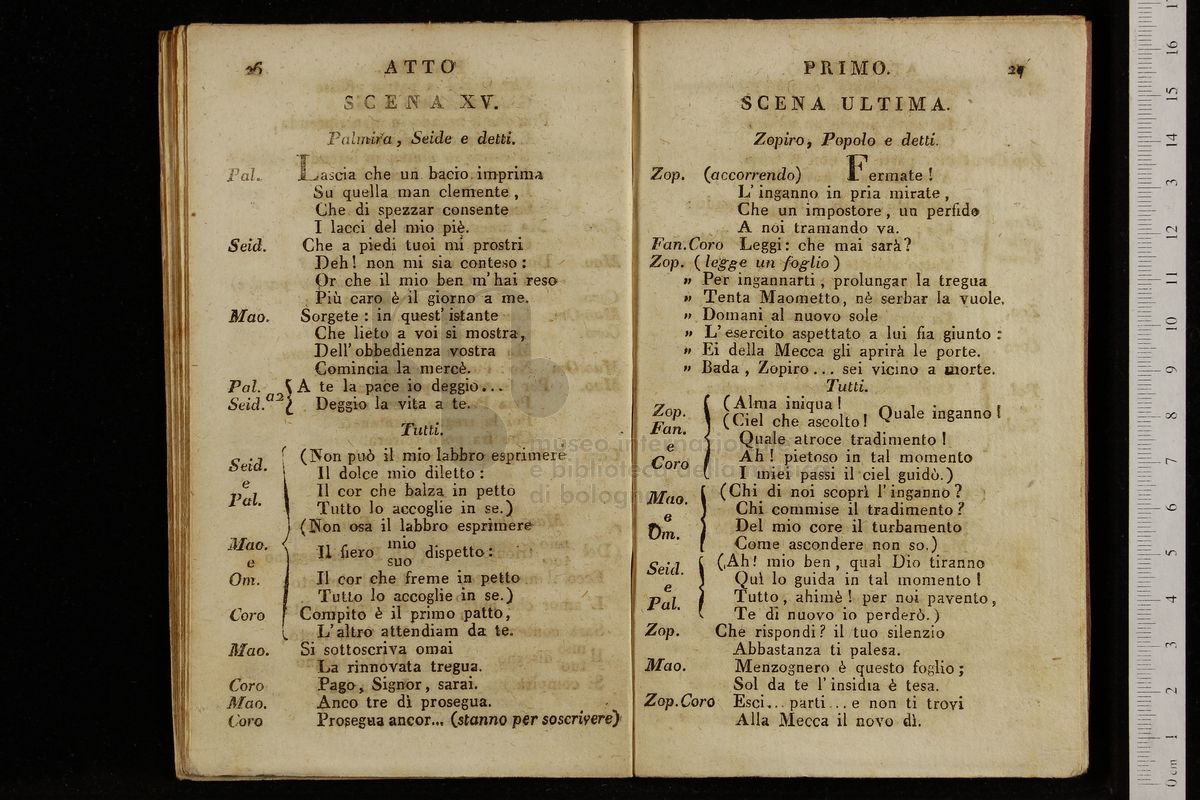 26 ATTO
SCENA XV.
Palmira, Seide e detti.
Pal. Lascia che un bacio imprima
Su quella man clemente,
Che di spezzar consente
I lacci del mio piè.
Seid. Che a piedi tuoi mi prostri
Deh! non mi sia conteso:
Or che il mio ben m'hai reso
Più caro è il giorno a me.
Mao. Sorgete: in quest'istante
Che lieto a voi si mostra,
Dell'obbedienza vostra
Comincia la mercè.
Pal. A te la pace io deggio...
Seid. a2 Deggio la vita a te.
Tutti.
Seid. e Pal. (Non può il mio labbro esprimere
Il dolce mio diletto:
Il cor che balza in petto
Tutto lo accoglie in se.)
Mao. e Om. (Non osa il labbro esprimere
Il fiero mio suo dispetto:
Il cor che freme in petto
Tutto lo accoglie in se.)
Coro Compito è il primo patto,
L'altro attendiam da te.
Mao. Si sottoscriva omai
La rinnovata tregua.
Coro Pago, Signor, sarai.
Mao. Anco tre dì prosegua.
Coro Prosegua ancor... (stanno per soscrivere)
PRIMO. 27
SCENA ULTIMA.
Zopiro, Popolo e detti.
Zop. (accorrendo) Fermate!
L'inganno in pria mirate,
Che un impostore, un perfido
A noi tramando va.
Fan. Coro Leggi: che mai sarà?
Zop. (legge un foglio)
" Per ingannarti, prolungar la tregua
" Tenta Maometto, nè serbar la vuole.
" Domani al nuovo sole
" L'esercito aspettato a lui fia giunto:
" Ei della Mecca gli aprirà le porte.
" Bada, Zopiro... sei vicino a morte.
Tutti.
Zop. Fan. e Coro (Alma iniqua!
(Ciel che ascolto! Quale inganno!
Quale atroce tradimento!
Ah! pietoso in tal momento
I miei passi il ciel guidò.)
Mao. e Om. (Chi di noi scoprì l'inganno?
Chi commise il tradimento?
Del mio core il turbamento
Come ascondere non so.)
Seid. e Pal. (Ah! mio ben, qual Dio tiranno
Quì lo guida in tal momento!
Tutto, ahimè! per noi pavento,
Te di nuovo io perderò.)
Zop. Che rispondi? il tuo silenzio
Abbastanza ti palesa.
Mao. Menzognero è questo foglio;
Sol da te l'insidia è tesa.
Zop. Coro Esci... parti... e non ti trovi
Alla Mecca il novo dì.
museo internazionale
e biblioteca della musica
di bologna
0 cm 1 2 3 4 5 6 7 8 9 10 11 12 13 14 15 16